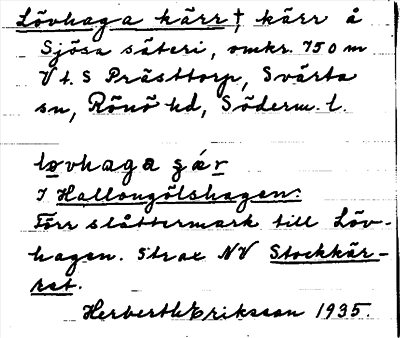 Lövhaga kärr †, kärr å
Sjösa säteri, omkr. 750 m
V t. S Prästtorp, Svärta
sn, Rönö hd, Söderm. l.
lovhaga çár
I Hallongölshagen:
Förr slåttermark till Löv-
hagen. Strax NV Stockkär-
ret.
Herberth Eriksson 1935.